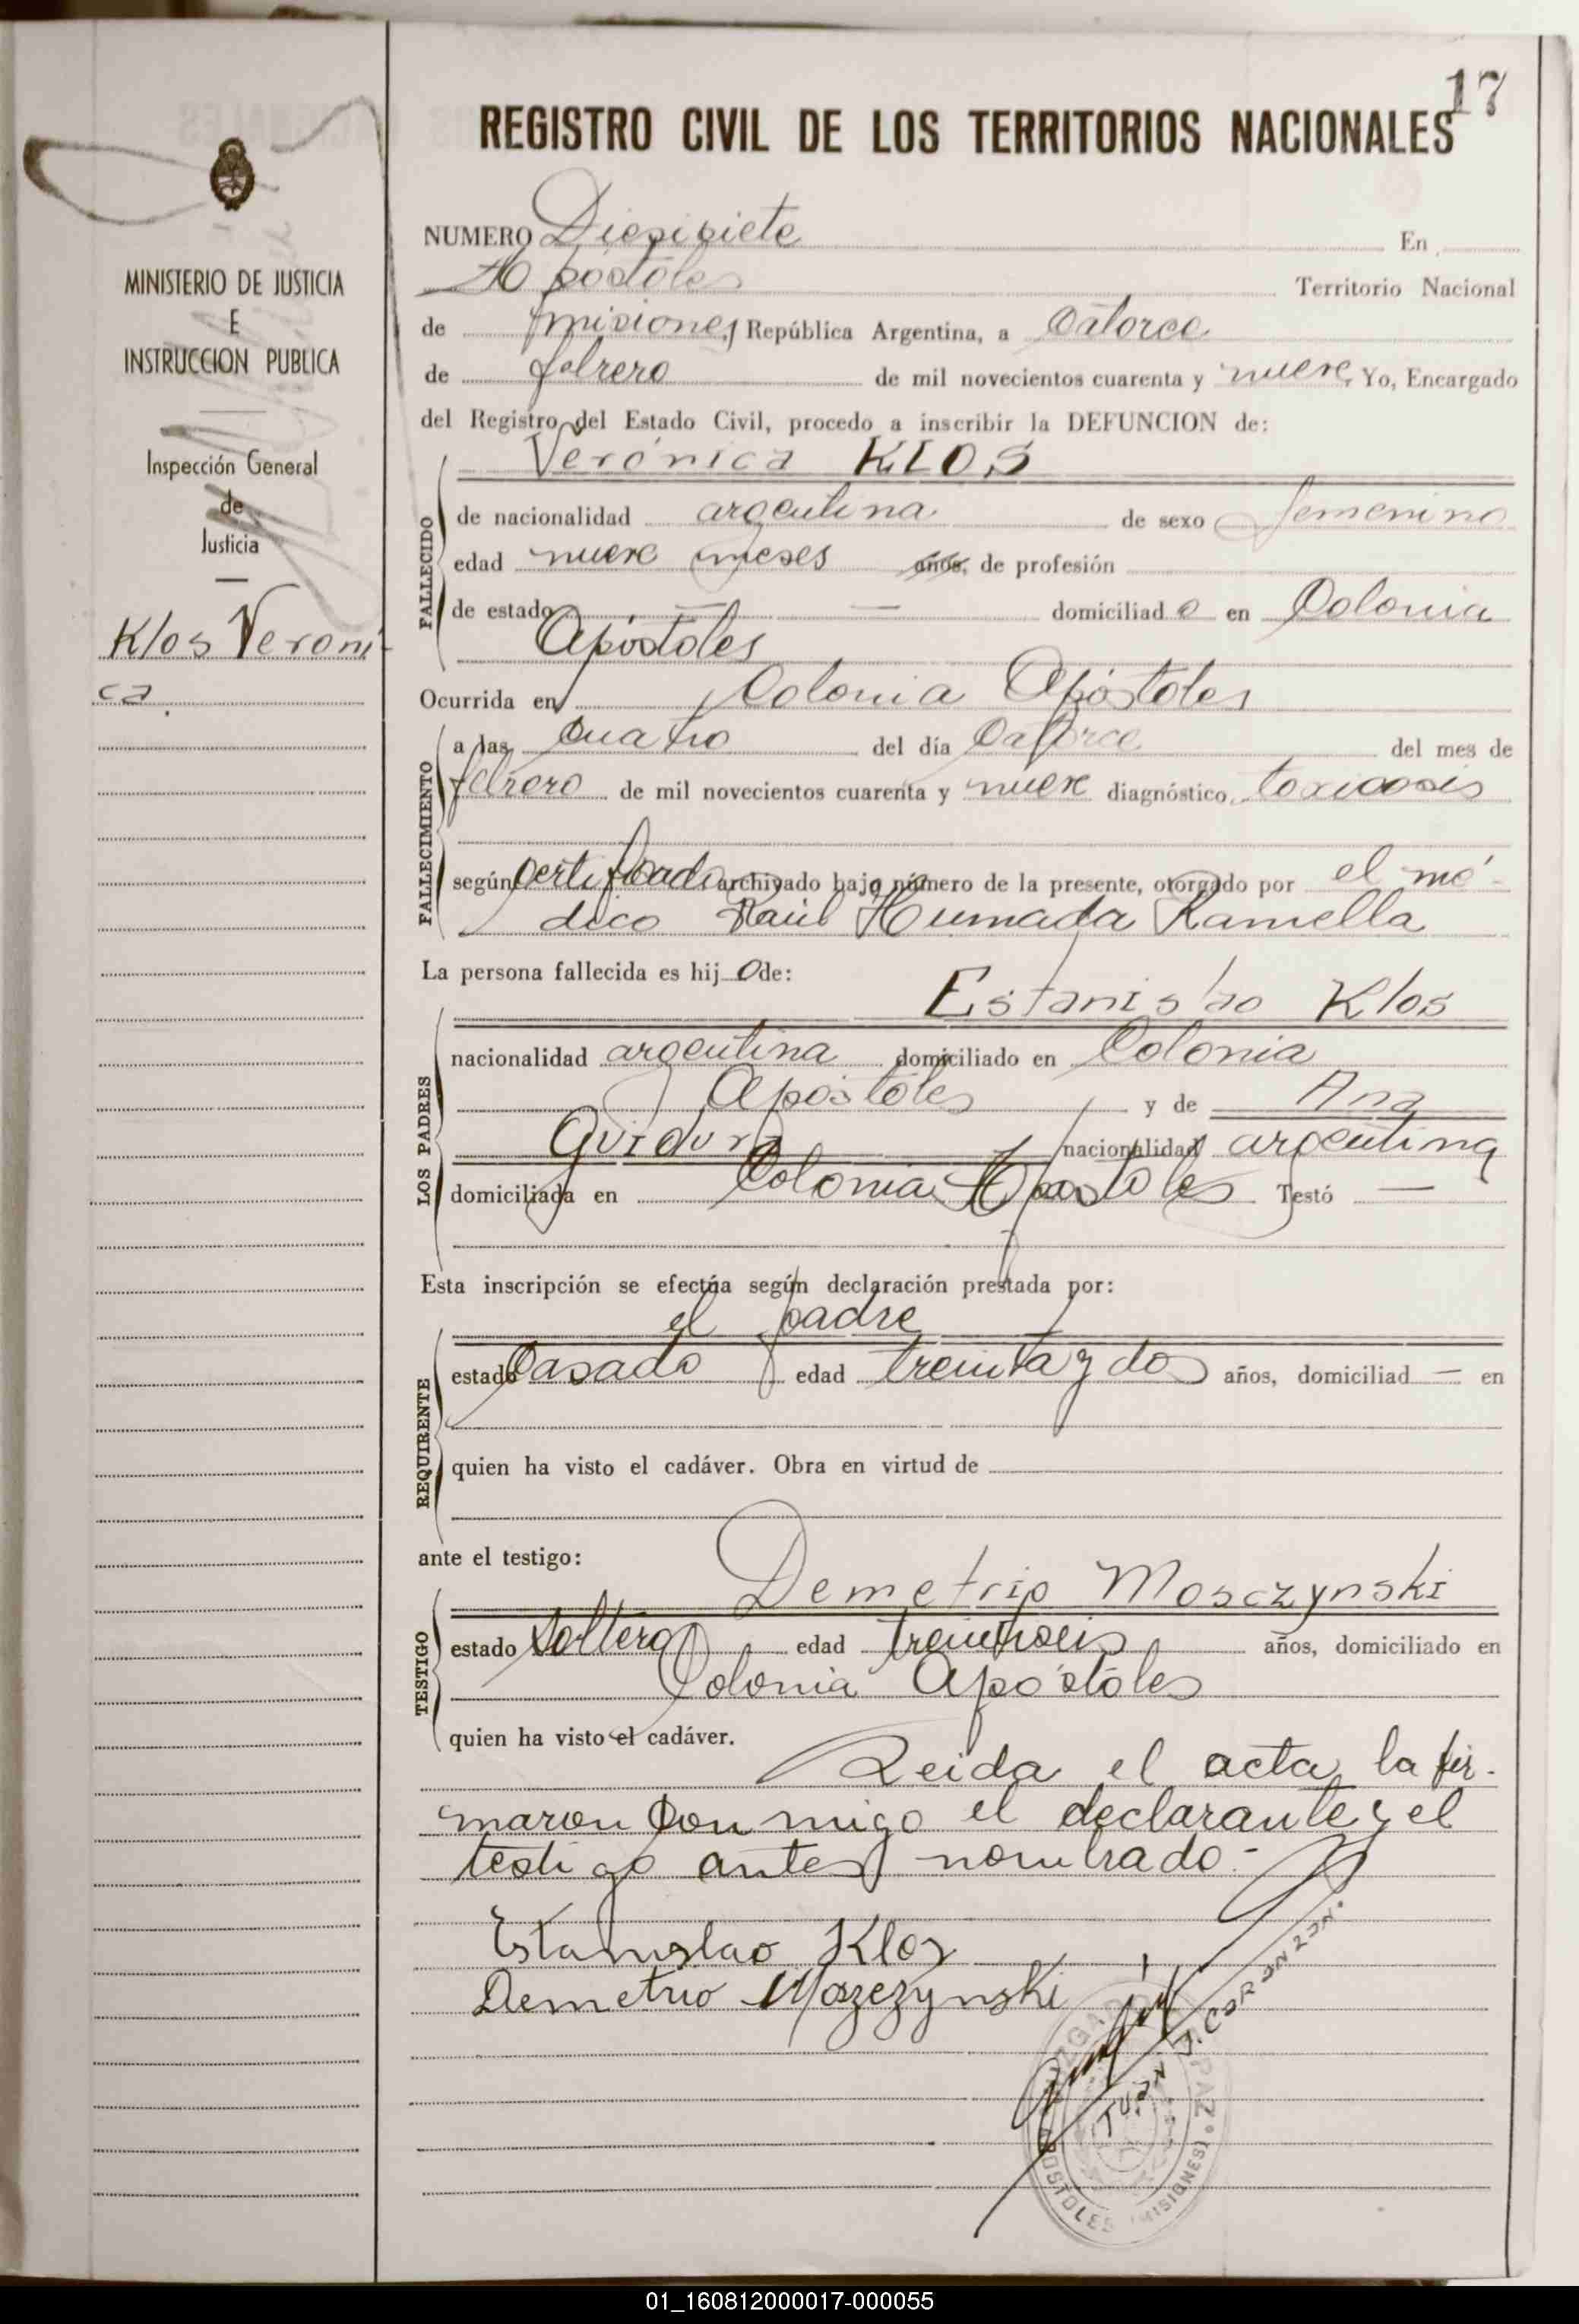 17
REGISTRO CIVIL DE LOS TERRITORIOS NACIONALES
MINISTERIO DE JUSTICIA
E
INSTRUCCION PUBLICA
Inspección General
de
Justicia
Klos Veroni-
ca.
NUMERO Diesisiete En
Apóstoles Territorio Nacional
de misiones República Argentina, a Catorce
de febrero de mil novecientos cuarenta y nueve, Yo, Encargado
del Registro del Estado Civil, procedo a inscribir la DEFUNCION de:
Verónica KLOS
FALLECIDO
de nacionalidad argentina de sexo femenino
edad nueve meses años, de profesión
de estado — — domiciliado en Colonia
Apóstoles
Ocurrida en Colonia Apóstoles
FALLECIMIENTO
a las cuatro del día Catorce del mes de
febrero de mil novecientos cuarenta y nueve diagnóstico, toxicosis
según certificado archivado bajo número de la presente, otorgado por el mé-
dico Raúl Humada Ramella
La persona fallecida es hijo de:
Estanislao Klos
LOS PADRES
nacionalidad argentina domiciliado en Colonia
Apóstoles y de Ana
Gvidura nacionalidad argentina
domiciliada en Colonia Apostoles Testó —
Esta inscripción se efectúa según declaración prestada por:
el padre
REQUIRENTE
estado Casado edad treinta y dos años, domiciliad — en
quien ha visto el cadáver. Obra en virtud de
ante el testigo:
Demetrio Mosczynski
TESTIGO
estado Soltero edad años, domiciliado en
Colonia Apóstóles
quien ha visto el cadáver.
Leida el acta la fir-
maron Con migo el declarante y el
testigo antes nombrado.-
Estanislao Klos
Demetrio Moszczynski
JUZGADO PAZ
APOSTOLES (MISIONES)
01_160812000017-000055